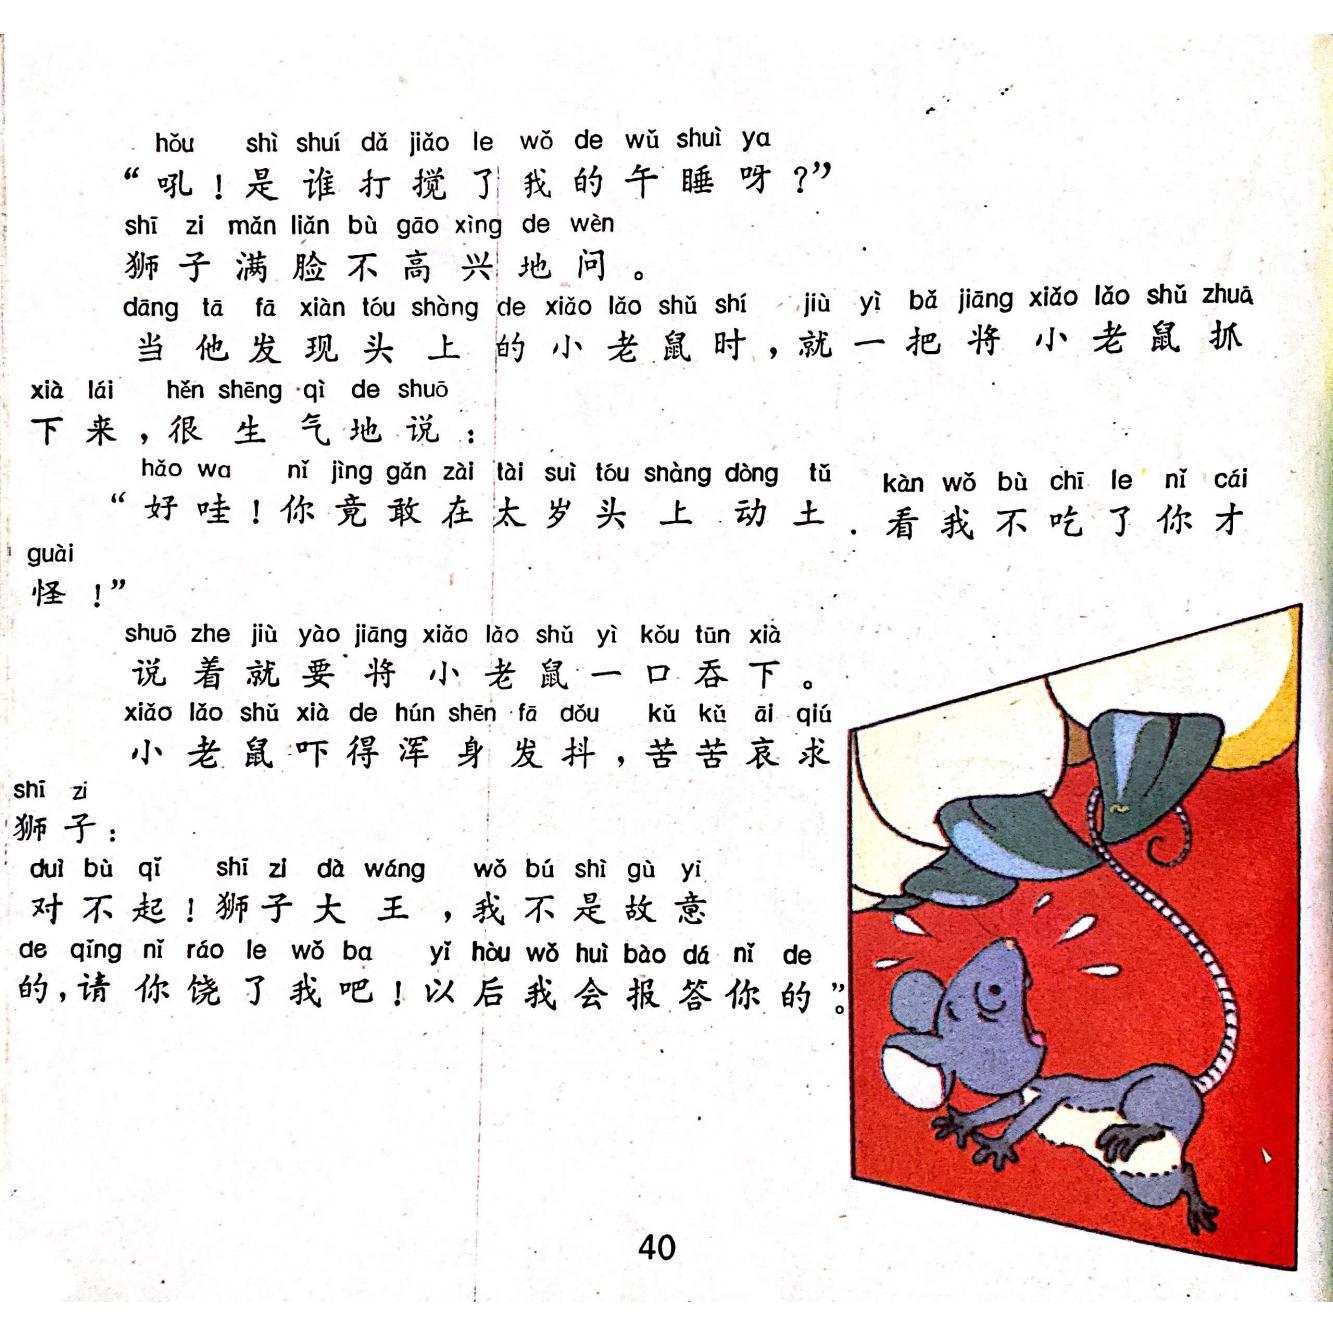 hǒu shì shuí dǎ jiǎo le wǒ de wǔ shuì ya
“吼！是谁打搅了我的午睡呀？”
shī zi mǎn liǎn bù gāo xìng de wèn
狮子满脸不高兴地问。
dāng tā fā xiàn tóu shàng de xiǎo lǎo shǔ shí jiù yì bǎ jiāng xiǎo lǎo shǔ zhuā
当他发现头上的小老鼠时，就一把将小老鼠抓
xià lái hěn shēng qì de shuō
下来，很生气地说：
hǎo wa nǐ jìng gǎn zài tài suì tóu shàng dòng tǔ kàn wǒ bù chī le nǐ cái
“好哇！你竟敢在太岁头上动土．看我不吃了你才
guài
怪！”
shuō zhe jiù yào jiāng xiǎo lǎo shǔ yì kǒu tūn xià
说着就要将小老鼠一口吞下。
xiǎo lǎo shǔ xià de hún shēn fā dǒu kǔ kǔ āi qiú
小老鼠吓得浑身发抖，苦苦哀求
shī zi
狮子：
duì bù qǐ shī zi dà wáng wǒ bú shì gù yi
对不起！狮子大王，我不是故意
de qǐng nǐ ráo le wǒ ba yǐ hòu wǒ huì bào dá nǐ de
的，请你饶了我吧！以后我会报答你的”。
40